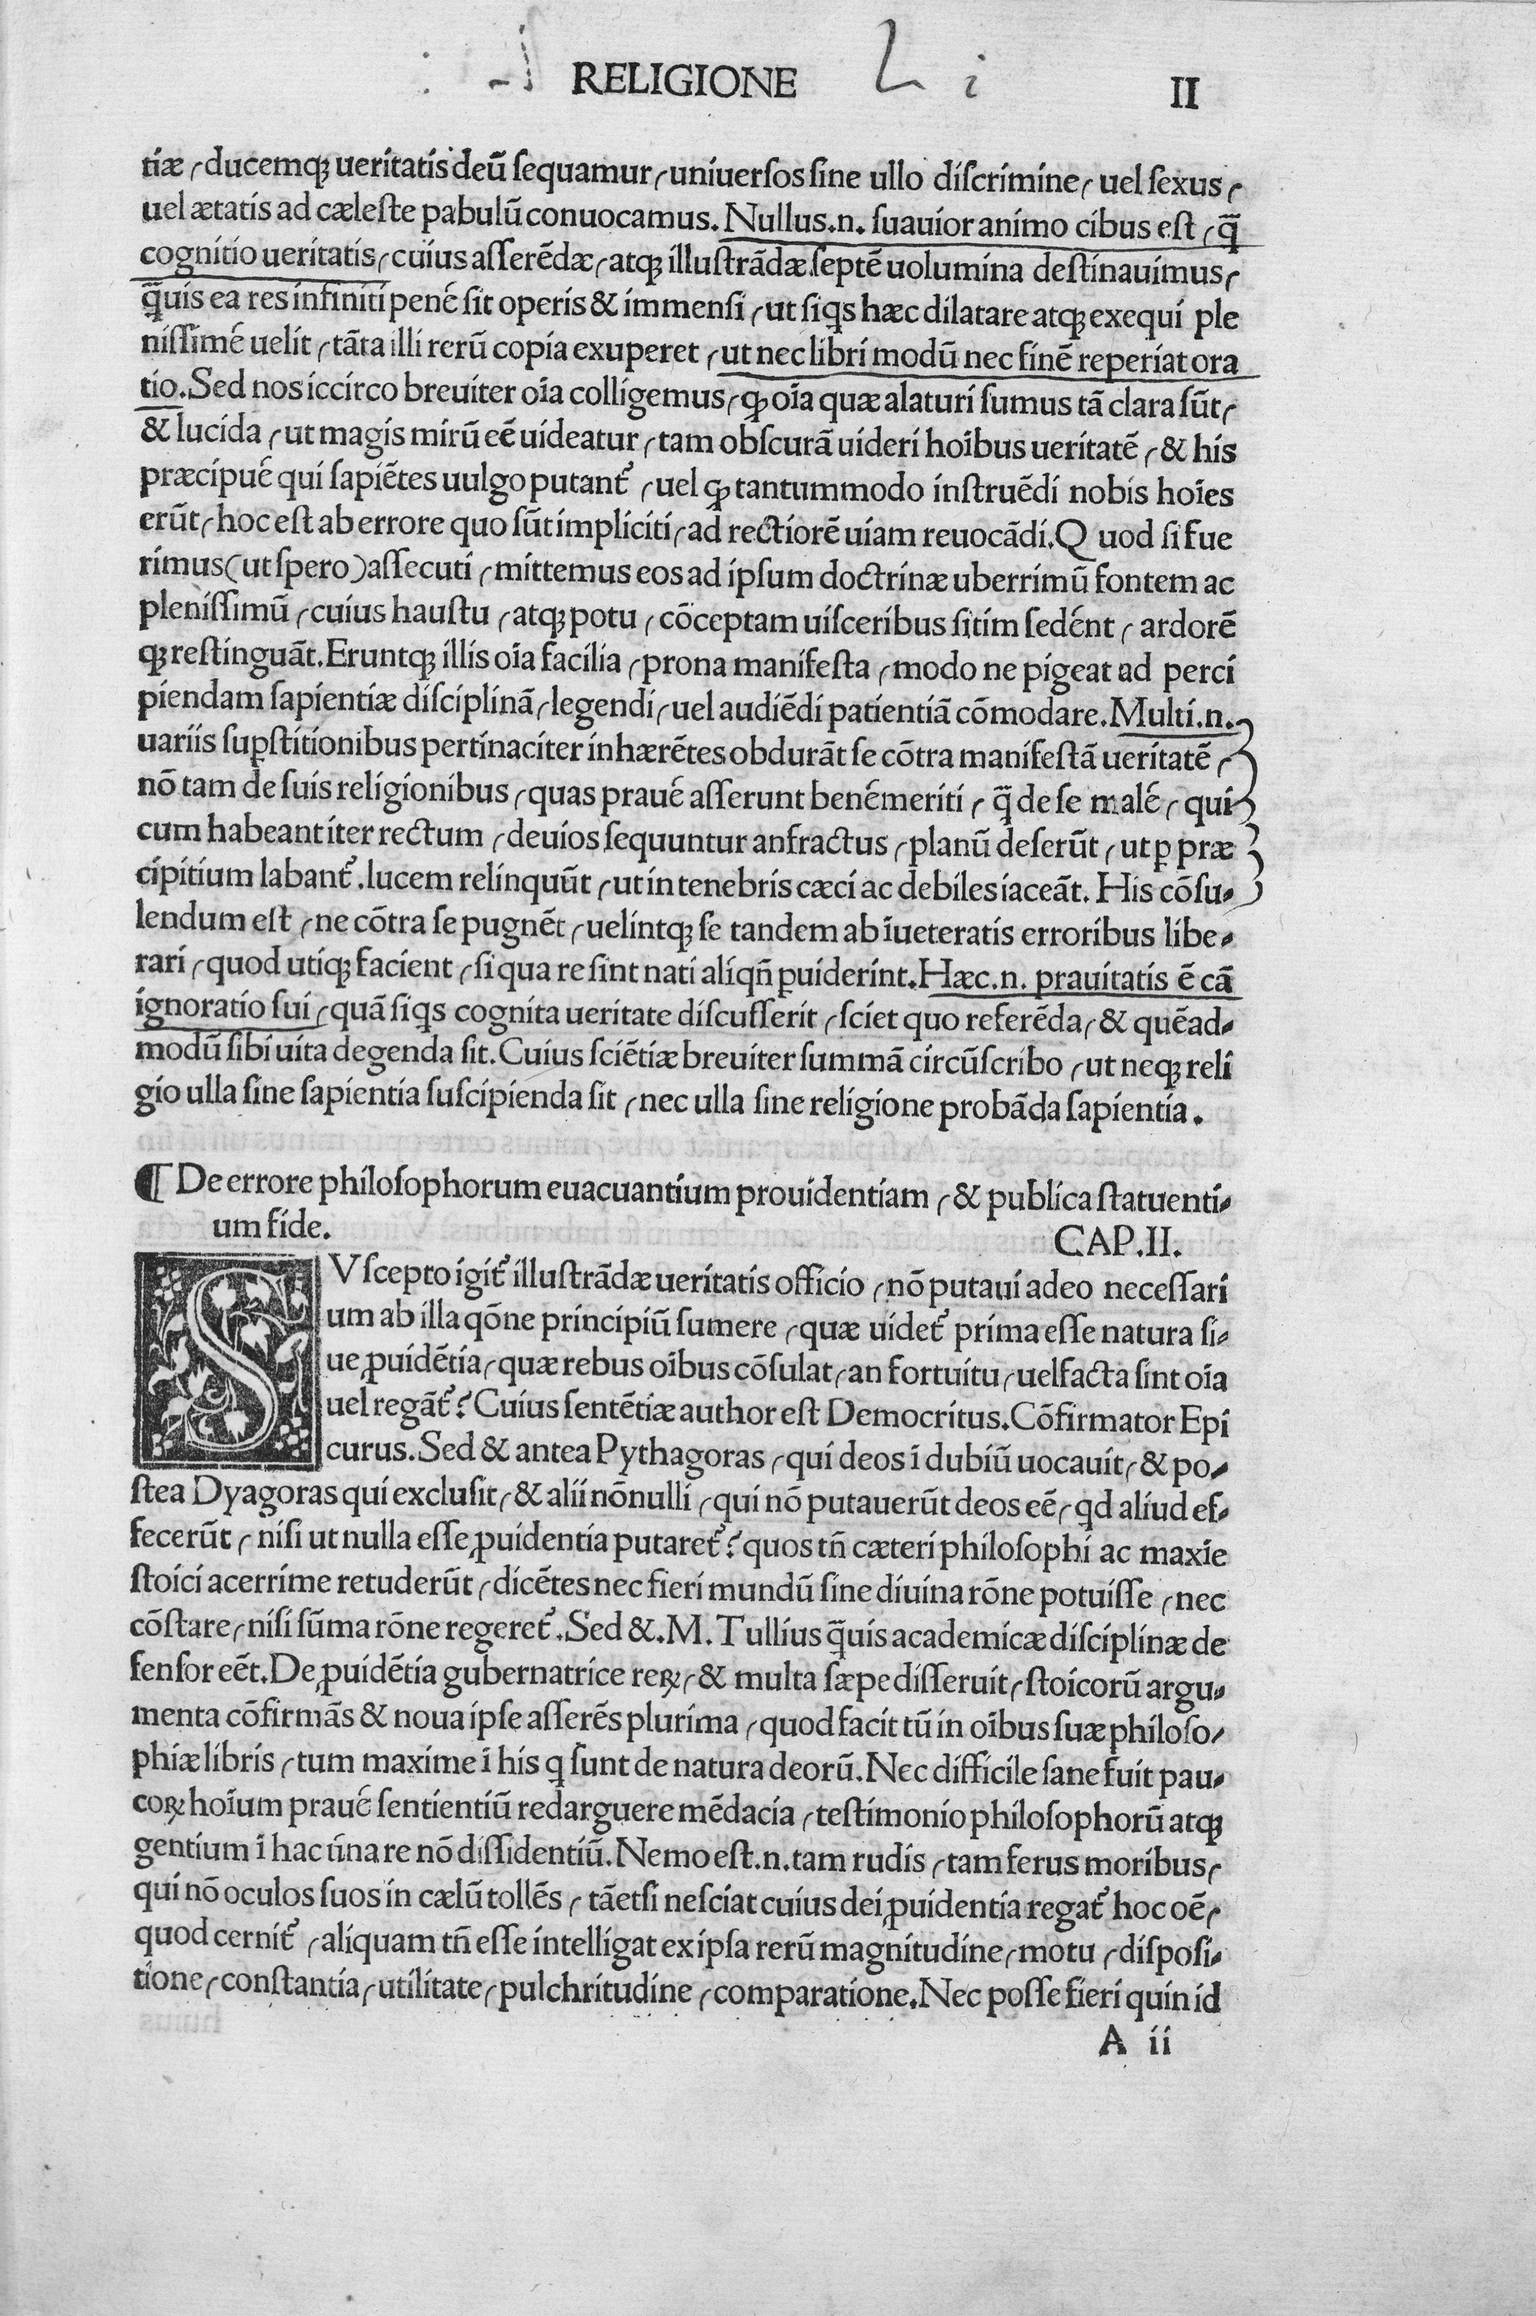 RELIGIONE L i II
tiæ, ducemq; ueritatis deū sequamur, uniuersos sine ullo discrimine, uel sexus,
uel ætatis ad cæleste pabulū conuocamus. Nullus.n. suauior animo cibus est, q̄
cognitio ueritatis, cuius asserēdæ, atq; illustrādæ septē uolumina destinauimus,
q̄uis ea res infiniti pené sit operis & immensi, ut siq̄s hæc dilatare atq; exequi ple
nissimé uelit, tāta illi rerū copia exuperet, ut nec libri modū nec finē reperiat ora
tio. Sed nos iccirco breuiter oīa colligemus, ꝙ oīa quæ alaturi sumus tā clara sūt,
& lucida, ut magis mirū eē uideatur, tam obscurā uideri hoībus ueritatē, & his
præcipué qui sapiētes uulgo putant᷑, uel ꝙ tantummodo instruēdi nobis hoīes
erūt, hoc est ab errore quo sūt impliciti, ad rectiorē uiam reuocādi. Quod si fue
rimus (ut spero) assecuti, mittemus eos ad ipsum doctrinæ uberrimū fontem ac
plenissimū, cuius haustu, atq; potu, cōceptam uisceribus sitim sedént, ardorē
q; restinguāt. Eruntq; illis oīa facilia, prona manifesta, modo ne pigeat ad perci
piendam sapientiæ disciplinā, legendi, uel audiēdi patientiā cōmodare. Multi.n.
uariis suꝑstitionibus pertinaciter inhærētes obdurāt se cōtra manifestā ueritatē,
nō tam de suis religionibus, quas praué asserunt benémeriti, q̄ de se malé, qui
cum habeant iter rectum, deuios sequuntur anfractus, planū deserūt, ut ꝑ præ
cipitium labant᷑. lucem relinquūt, ut in tenebris cæci ac debiles iaceāt. His cōsu-
lendum est, ne cōtra se pugnēt, uelintq; se tandem ab īueteratis erroribus libe-
rari, quod utiq; facient, si qua re sint nati aliqñ ꝓuiderint. Hæc.n. prauitatis ē cā
ignoratio sui, quā siq̄s cognita ueritate discusserit, sciet quo referēda, & quēad-
modū sibi uita degenda sit. Cuius sciētiæ breuiter summā circūscribo, ut neq; reli
gio ulla sine sapientia suscipienda sit, nec ulla sine religione probāda sapientia.
¶ De errore philosophorum euacuantium prouidentiam, & publica statuenti-
um fide. CAP.II.
SVscepto igit᷑ illustrādæ ueritatis officio, nō putaui adeo necessari
um ab illa qōne principiū sumere, quæ uidet᷑ prima esse natura si-
ue ꝓuidētia, quæ rebus oībus cōsulat, an fortuitu, uel facta sint oīa
uel regāt᷑? Cuius sentētiæ author est Democritus. Cōfirmator Epi
curus. Sed & antea Pythagoras, qui deos ī dubiū uocauit, & po-
stea Dyagoras qui exclusit, & alii nōnulli, qui nō putauerūt deos eē, qd aliud ef-
fecerūt, nisi ut nulla esse ꝓuidentia putaret᷑? quos tñ cæteri philosophi ac maxīe
stoici acerrime retuderūt, dicētes nec fieri mundū sine diuina rōne potuisse, nec
cōstare, nisi sūma rōne regeret᷑. Sed &. M. Tullius q̄uis academicæ disciplinæ de
fensor eēt. De ꝓuidētia gubernatrice reꝝ, & multa sæpe disseruit, stoicorū argu-
menta cōfirmās & noua ipse asserēs plurima, quod facit tū in oībus suæ philoso-
phiæ libris, tum maxime ī his q̄ sunt de natura deorū. Nec difficile sane fuit pau-
coꝝ hoīum praué sentientiū redarguere mēdacia, testimonio philosophorū atq;
gentium ī hac úna re nō dissidentiū. Nemo est.n. tam rudis, tam ferus moribus,
qui nō oculos suos in cælū tollēs, tāetsi nesciat cuius dei ꝓuidentia regat᷑ hoc oē,
quod cernit᷑, aliquam tñ esse intelligat ex ipsa rerū magnitudine, motu, disposi-
tione, constantia, utilitate, pulchritudine, comparatione. Nec posse fieri quin id
A ii